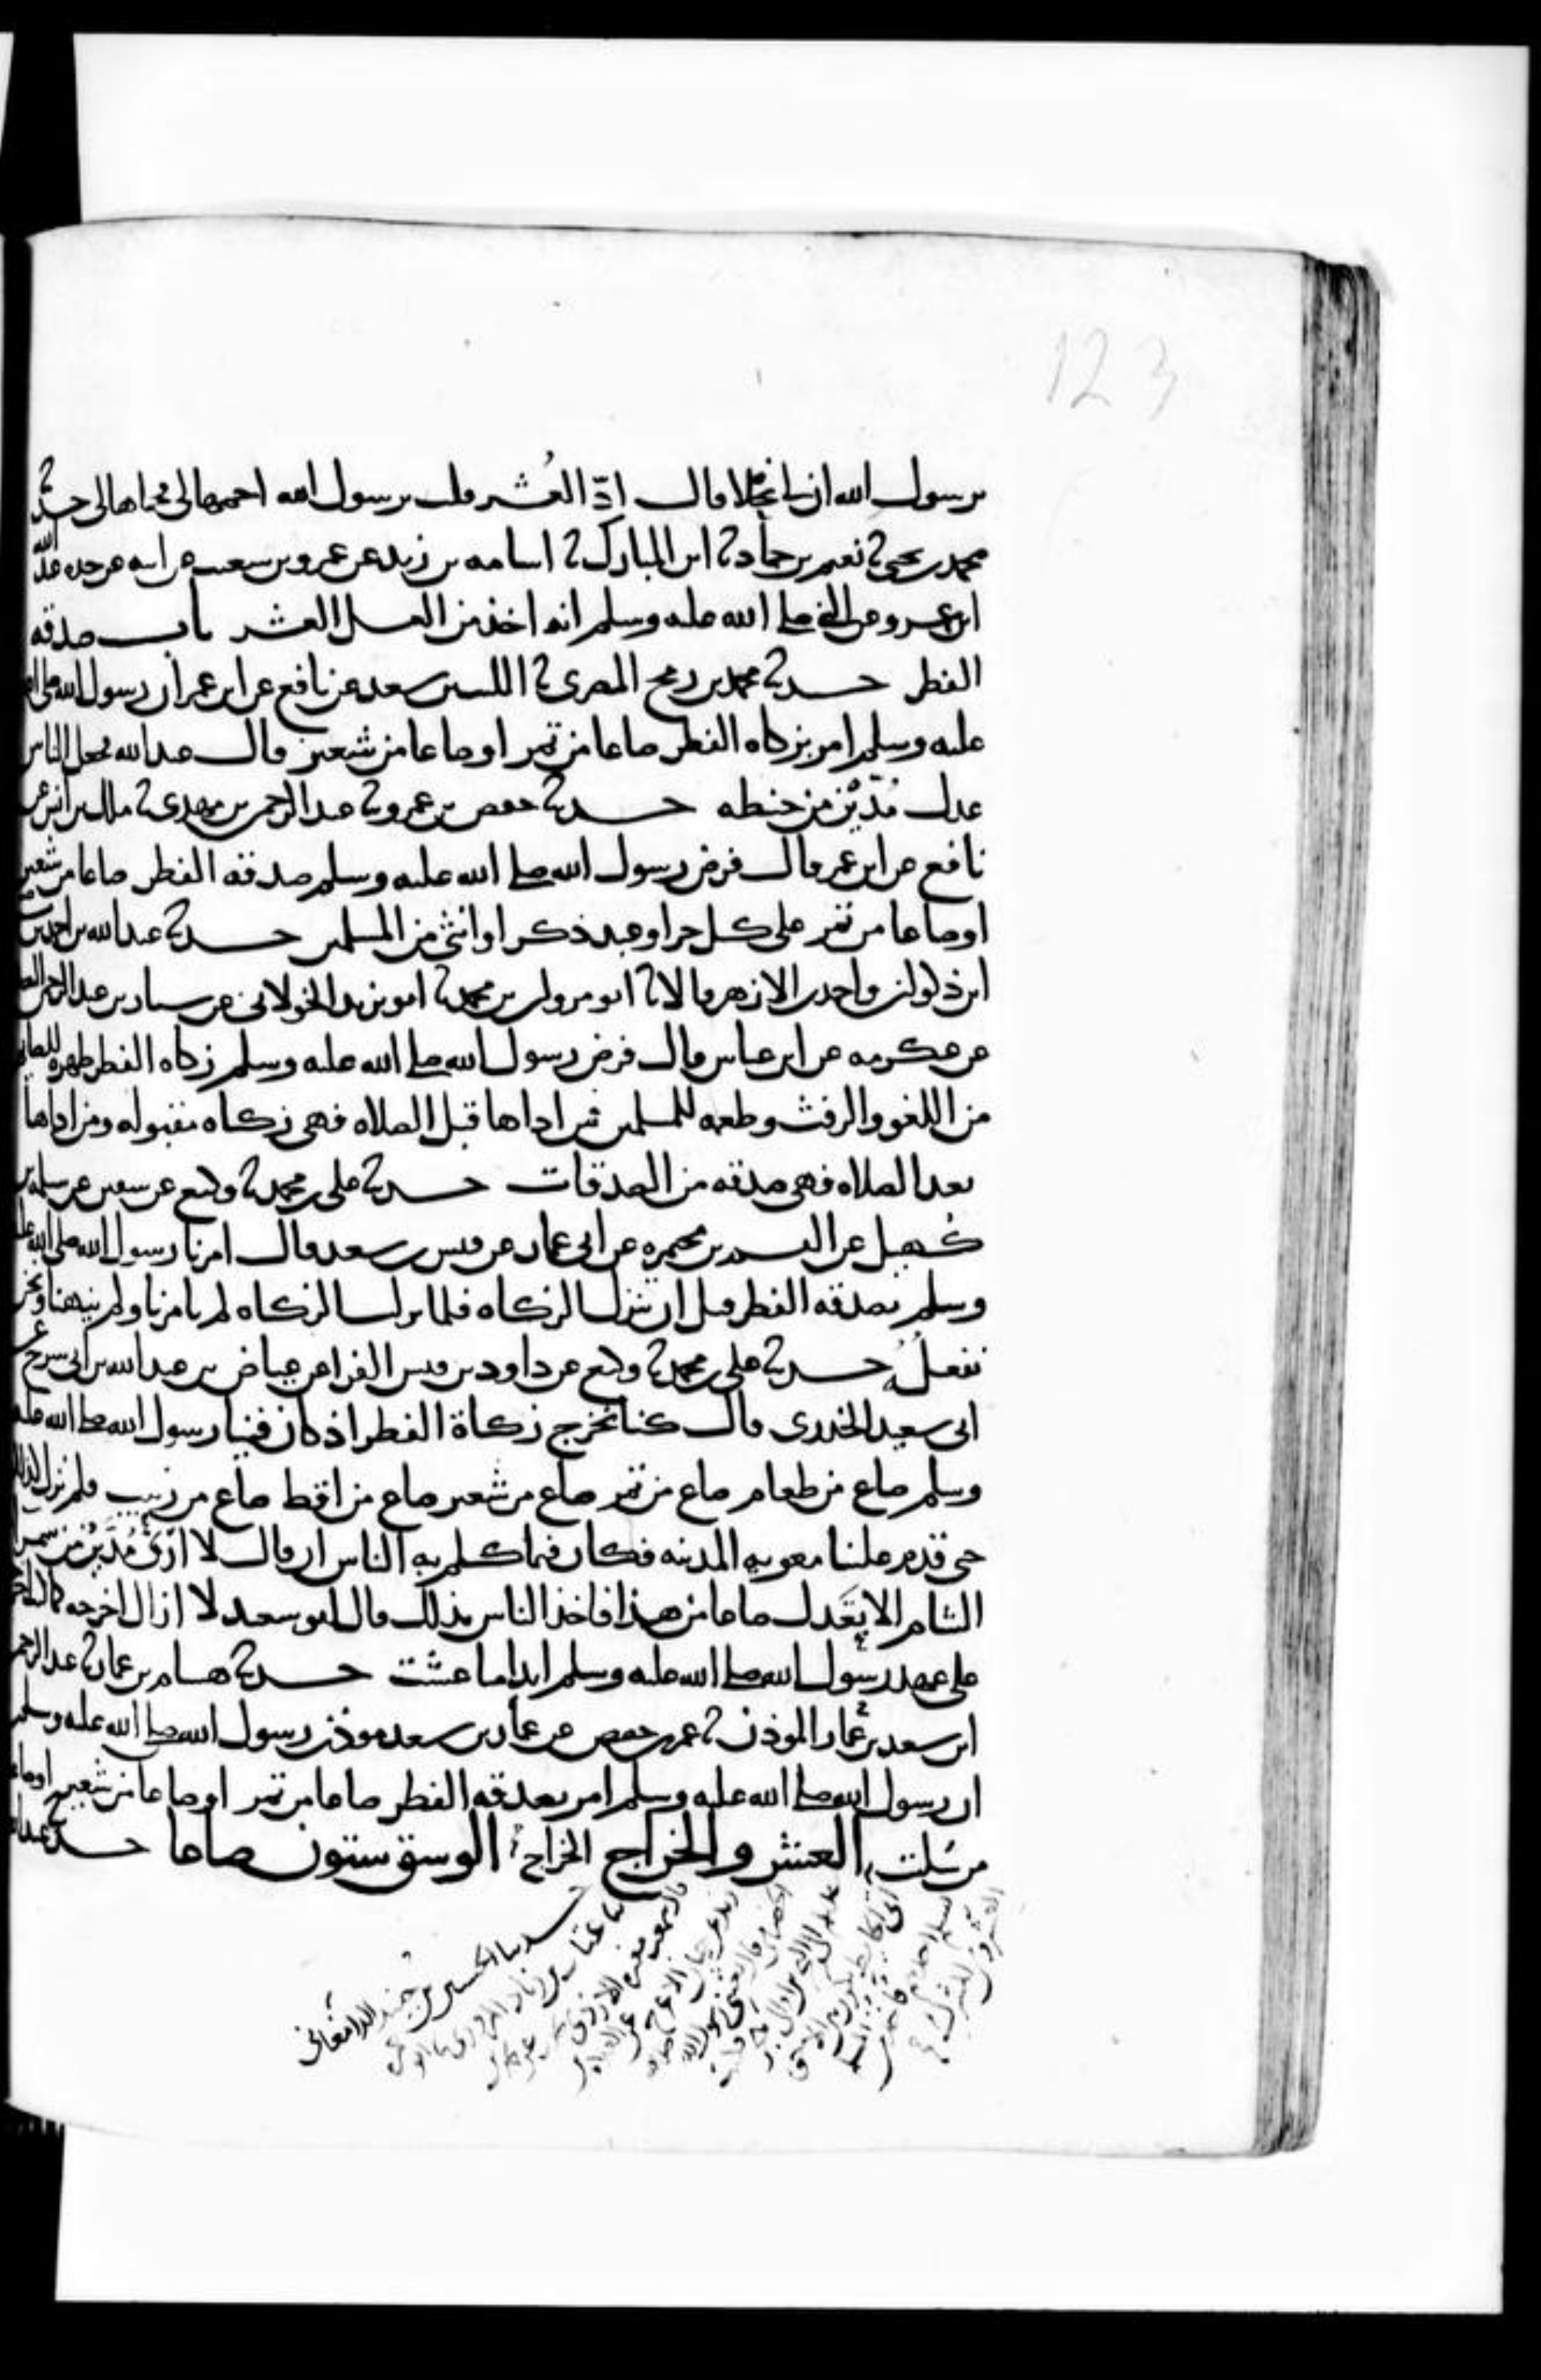 123
يرسول الله ان لي نخلا قال ادّ العُشر قلت يرسول الله احمها لي فحماها لي حدثنا
محمد بن يحيى نا نعيم بن حماد نا ابن المبارك نا اسامه بن زيد عن عمرو بن شعيب عن ابيه عن جده عبد الله
ابن عمرو عن النبي صلى الله عليه وسلم انه اخذ من العسل العشر باب صدقه
الفطر حدثنا محمد بن رمح المصري نا الليث بن سعد عن نافع عن ابن عمر ان رسول الله صلى الله
عليه وسلم امر بزكاه الفطر صاعا من تمر او صاعا من شعير قال عبد الله فجعل الناس
عدل مُدّيْن من حنطه حدثنا حفص بن عمرو نا عبد الرحمن بن مهدي نا مالك بن انس عن
نافع عن ابن عمر قال فرض رسول الله صلى الله عليه وسلم صدقه الفطر صاعا من شعير
او صاعا من تمر على كل حر او عبد ذكر او انثى من المسلمين حدثنا عبد الله بن احمد بن
ابن ذكوان واحمد بن الازهر قالا نا مروان بن محمد نا ابو يزيد الخولاني عن سيار بن عبد الرحمن
عن عكرمه عن ابن عباس قال فرض رسول الله صلى الله عليه وسلم زكاه الفطر طهره للصائم
من اللغو والرفث وطعمه للمسلمين فمن اداها قبل الصلاه فهي زكاه مقبوله ومن اداها
بعد الصلاه فهي صدقه من الصدقات حدثنا علي بن محمد نا وكيع عن سفين عن سلمه بن
كُهيل عن القسم بن مخيمره عن ابي عمار عن قيس بن سعد قال امرنا رسول الله صلى الله عليه
وسلم بصدقه الفطر قبل ان تنزل الزكاه فلما نزلت الزكاه لم يامرنا ولم ينهنا ونحن
نفعلُه حدثنا علي بن محمد نا وكيع عن داود بن قيس الفرا عن عياض بن عبد الله بن ابي سرح عن
ابي سعيد الخدري قال كنا نخرج زكاة الفطر اذ كان فينا رسول الله صلى الله عليه
وسلم صاع من طعام صاع من تمر صاع من شعير صاع من اقط صاع من زبيب فلم نزل كذلك
حتى قدم علينا معويه المدينه فكان فيما كلم به الناس ان قال لا اُرَى مُدَّيْن من سمرا
الشام الا يَعْدل صاعا من هذا فاخذ الناس بذلك قال ابو سعيد لا ازال اخرجه كما كنت اخرجه
على عهد رسول الله صلى الله عليه وسلم ابدا ما عشت حدثنا هشام بن عمار نا عبد الرحمن
ابن سعد بن عمار الموذن نا عمر بن حفص عن عمار بن سعد موذن رسول الله صلى الله عليه وسلم
ان رسول الله صلى الله عليه وسلم امر بصدقه الفطر صاعا من تمر او صاعا من شعير او صاعا
من سُلت العشر والخراج الخراج الوسق ستون صاعا حدثنا عبد الله
حدثنا الحسين بن جنيد الدامغاني